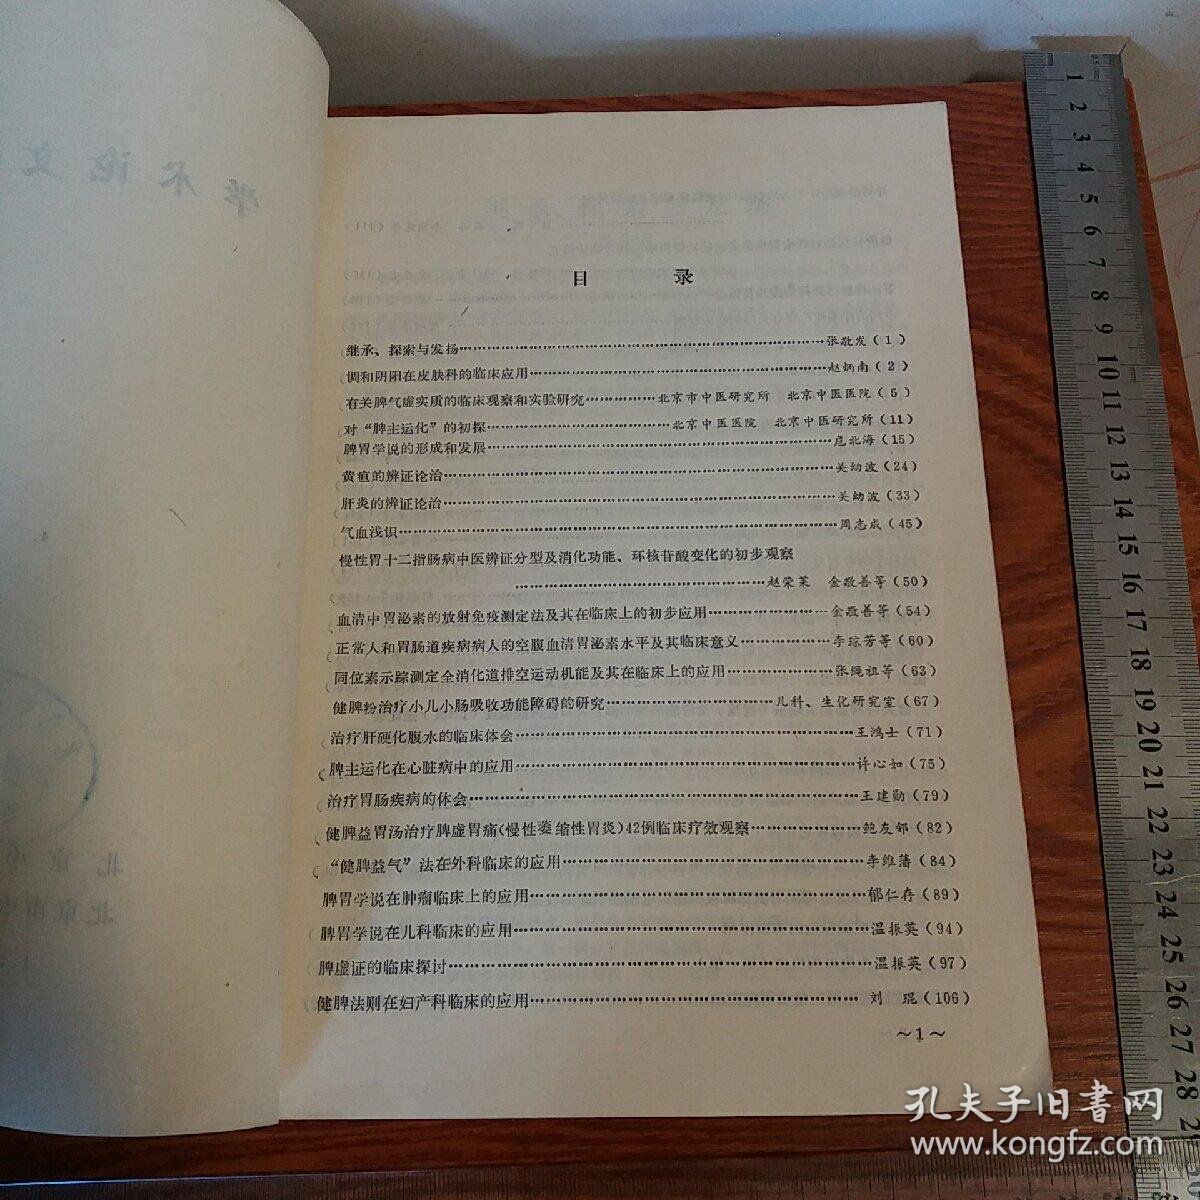 学术论文
目 录
继承、探索与发扬……张敬发(1)
调和阴阳在皮肤科的临床应用……赵炳南(2)
有关脾气虚实质的临床观察和实验研究……北京市中医研究所 北京中医医院(5)
对“脾主运化”的初探……北京中医医院 北京中医研究所(11)
脾胃学说的形成和发展……危北海(15)
黄疸的辨证论治……关幼波(24)
肝炎的辨证论治……关幼波(33)
气血浅识……周志成(45)
慢性胃十二指肠病中医辨证分型及消化功能、环核苷酸变化的初步观察
……赵荣莱 金敬善等(50)
血清中胃泌素的放射免疫测定法及其在临床上的初步应用……金敬善等(54)
正常人和胃肠道疾病病人的空腹血清胃泌素水平及其临床意义……李琼芳等(60)
同位素示踪测定全消化道排空运动机能及其在临床上的应用……张绳祖等(63)
健脾粉治疗小儿小肠吸收功能障碍的研究……儿科、生化研究室(67)
治疗肝硬化腹水的临床体会……王鸿士(71)
脾主运化在心脏病中的应用……许心如(75)
治疗胃肠疾病的体会……王建勋(79)
健脾益胃汤治疗脾虚胃痛(慢性萎缩性胃炎)42例临床疗效观察……鲍友邻(82)
“健脾益气”法在外科临床的应用……李维藩(84)
脾胃学说在肿瘤临床上的应用……郁仁存(89)
脾胃学说在儿科临床的应用……温振英(94)
脾虚证的临床探讨……温振英(97)
健脾法则在妇产科临床的应用……刘 琨(106)
～1～
孔夫子旧书网
www.kongfz.com
1 2 3 4 5 6 7 8 9 10 11 12 13 14 15 16 17 18 19 20 21 22 23 24 25 26 27 28